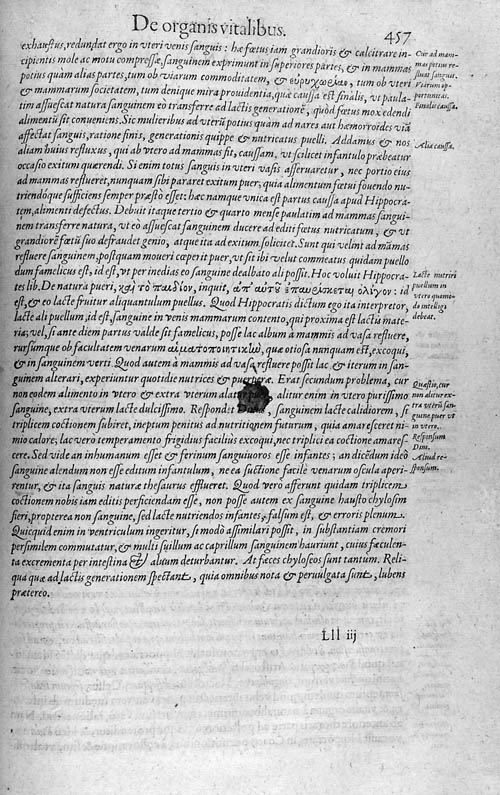 De organis vitalibus.
457
exhaustus, redundat ergo in vteri venis sanguis: hæ fœtus iam grandioris & calcitrare in-
cipientis mole ac motu compressæ, sanguinem exprimunt in superiores partes, & in mammas
potius quàm alias partes, tum ob viarum commoditatem, & εὐρυχωρίαν, tum ob vteri
& mammarum societatem, tum denique mira prouidentia, quæ caussa est finalis, vt paula-
tim assuescat natura sanguinem eo transferre ad lactis generationē, quòd fœtus mox edendi
alimentū sit conueniens. Sic mulieribus ad vterū potius quàm ad nares aut hæmoroides viā
affectat sanguis, ratione finis, generationis quippe & nutricatus puelli. Addamus & nos
aliam huius refluxus, qui ab vtero ad mammas fit, caussam, vt scilicet infantulo præbeatur
occasio exitum quærendi. Si enim totus sanguis in vteri vasis asseruaretur, nec portio eius
ad mammas reflueret, nunquam sibi pararet exitum puer, quia alimentum fœtui fouendo nu-
triendóque sufficiens semper præstò esset: hæc namque vnica est partus caussa apud Hippocra-
tem, alimenti defectus. Debuit itaque tertio & quarto mense paulatim ad mammas sangui-
nem transferre natura, vt eo assuescat sanguinem ducere ad editi fœtus nutricatum, & vt
grandiorē fœtū suo defraudet genio, atque ita ad exitum solicitet. Sunt qui velint ad māmas
refluere sanguinem, postquam moueri cœperit puer, vt sit ibi velut commeatus quidam puello
dum famelicus est, id est, vt per inedias eo sanguine dealbato ali possit. Hoc voluit Hippocra-
tes lib. De natura pueri, καὶ τὸ παιδίον, inquit, ἀπ' αὐτοῦ ἐπαυρίσκεται ὀλίγον: id
est, & eo lacte fruitur aliquantulum puellus. Quod Hippocratis dictum ego ita interpretor,
lacte ali puellum, id est, sanguine in venis mammarum contento, qui proxima est lactis mate-
ria; vel, si ante diem partus valde sit famelicus, posse lac album à mammis ad vasa refluere,
rursumque ob facultatem venarum αἱματοποιητικὴν, quæ otiosa nunquam est, excoqui,
& in sanguinem verti. Quod autem à mammis ad vasa refluere possit lac & iterum in san-
guinem alterari, experiuntur quotidie nutrices & puerperæ. Erat secundum problema, cur
non eodem alimento in vtero & extra vterum alatur alitur enim in vtero purissimo
sanguine, extra vterum lacte dulcissimo. Respondet , sanguinem lacte calidiorem, si
triplicem coctionem subiret, ineptum penitus ad nutritionem futurum, quia amaresceret ni-
mio calore; lac vero temperamento frigidius facilius excoqui, nec triplici ea coctione amares-
cere. Sed vide an inhumanum esset & ferinum sanguiuoros esse infantes; an dicēdum ideò
sanguine alendum non esse editum infantulum, ne ea suctione facilè venarum oscula aperi-
rentur, & ita sanguis naturæ thesaurus efflueret. Quod verò afferunt quidam triplicem
coctionem nobis iam editis perficiendam esse, non posse autem ex sanguine hausto chylosim
fieri, propterea non sanguine, sed lacte nutriendos infantes, falsum est, & erroris plenum.
Quicquid enim in ventriculum ingeritur, si modò assimilari possit, in substantiam cremori
persimilem commutatur, & multi suillum ac caprillum sanguinem hauriunt, cuius fæculen-
ta excrementa per intestina & aluum deturbantur. At fæces chyloseôs sunt tantum. Reli-
qua quæ ad lactis generationem spectant, quia omnibus nota & peruulgata sunt, lubens
prætereo.
Cur ad mam-
mas potius re-
fluat sanguis.
Viarum op-
portunitas.
Finalis caussa.
Alia caussa.
Lacte nutriri
puellum in
vtero quomo-
do intelligi
debeat.
Quæstio, cur
non alatur ex-
tra vterū san-
guine puer vt
in vtero.
Responsum
Alius re-
sponsum.
LII iij